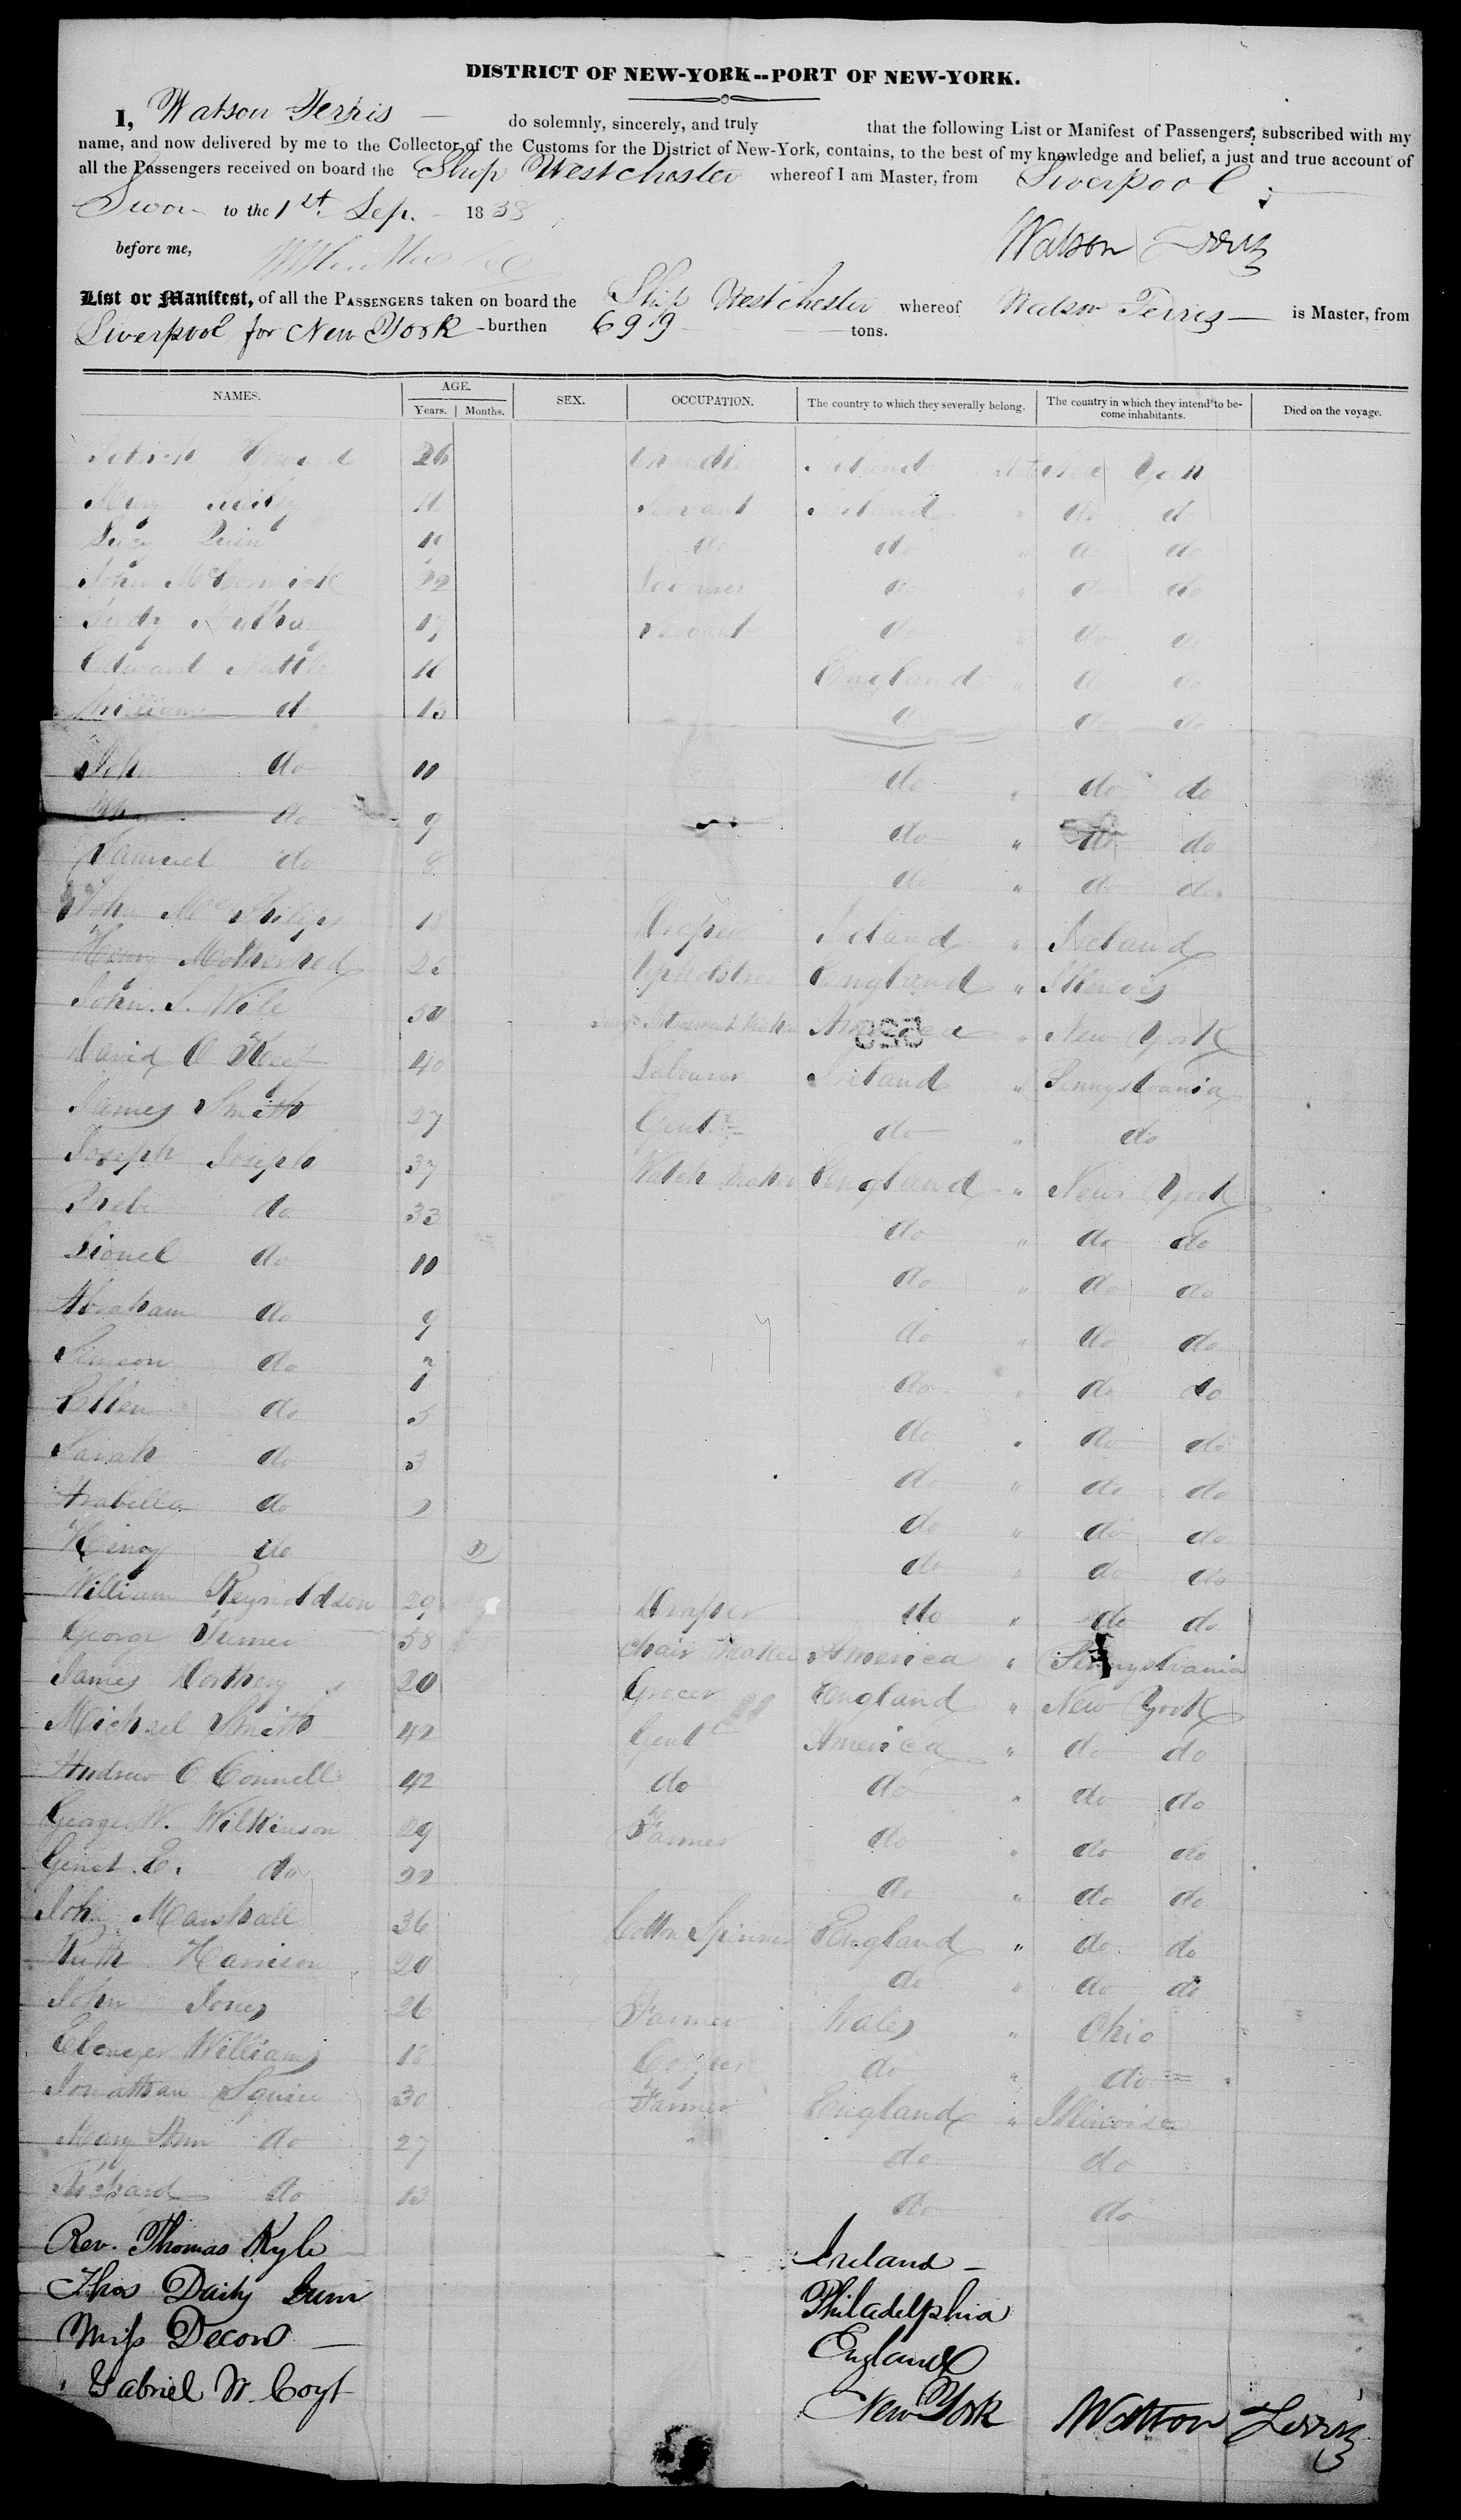 DISTRICT OF NEW-YORK--PORT OF NEW-YORK.
I, Watson Ferris do solemnly, sincerely, and truly that the following List or Manifest of Passengers, subscribed with my
name, and now delivered by me to the Collector of the Customs for the District of New-York, contains, to the best of my knowledge and belief, a just and true account of
all the Passengers received on board the Ship Westchester whereof I am Master, from Liverpool
Sworn to the 1st. Sep. 1838
before me, Watson Ferris
List or Manifest, of all the PASSENGERS taken on board the Ship Westchester whereof Watson Ferris is Master, from
Liverpool for New York burthen 699 tons.
NAMES. AGE. SEX. OCCUPATION. The country to which they severally belong. The country in which they intend to be-
Years. Months. come inhabitants. Died on the voyage.
26 Ireland York
Mary Reily Servant Ireland do d
Lucy Quin do do do do
John McCormick 22 Labourer do do do
Judy 17 Servant do do do
Edward England do do
William d 13 d do do
John do 10 do " do do
do 9 do " do do
Samuel do 8 do " do do
John McPhilips 18 Draper Ireland " Ireland
Henry Motherhed 26 Upholster England " Illinois
John. S. 50 America " New York
David O Keef 40 Labourer Ireland " Pennsylvania
James Smith 27 Gent do " do
Joseph Joseph 37 Watch Maker England " New York
Phebe do 33 do " do do
Lionel do 10 do " do do
Abraham do 9 do " do do
Simeon do 7 do " do do
Ellen do 5 do " do do
Sarah do 3 do " do do
Arabella do 2 do " do do
Henry do do " do do
William Reynoldson 29 Draper do " do do
George Turner 58 Chair Maker America " Pennsylvania
James Northey 20 Grocer England " New York
Michael Smith 42 Gent America " do do
Andrew O Connell 42 do do " do do
George W. Wilkinson 29 Farmer do " do do
Genet. E. do 22 do " do do
John Marshall 36 Cotton Spinner England " do do
Ruth Harrison 20 do " do do
John Jones 26 Farmer Wales " Ohio
Ebenezer Williams 18 do " do
Jonathan Squire 30 Farmer England " Illinois
Mary Ann do 27 do do
Richard do 13 do do
Rev. Thomas Kyle Ireland
Thos Daily Philadelphia
Miss Decow England
Gabriel W. Coyt New York Watson Ferris